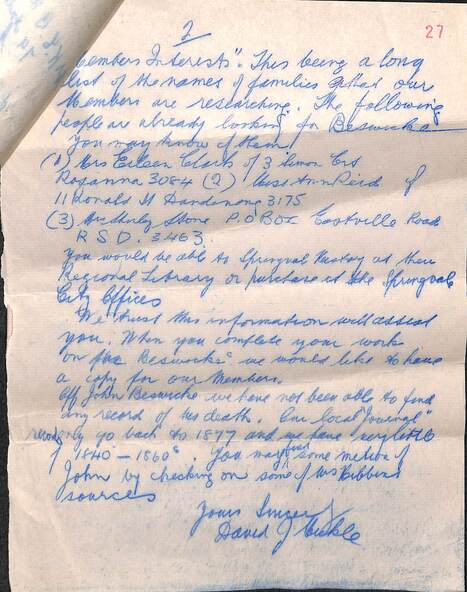 2
27
Members Interests". This being a long
list of the names of families that our
Members are researching. The following
people are already looking for Beswicks.
You may know of them
(1) Mrs Eileen Clark of 3 Simon Crt
Rosanna 3084 (2) Miss Ann Reid of
11 Ronald St Dandenong 3175
(3) Mrs Stone P.O Box Eastville Road
R S D. 3463.
You would be able to Springvale History at their
Regional Library or purchase at the Springvale
City Offices
We trust this information will assist
you. When you complete your work
on the Beswicks" we would like to have
a copy for our Members.
Of John Beswicke we have not been able to find
any record of his death. Our local Journal"
only go back to 1877 and we have very little
of 1840 - 1860s. You may find some mention of
John by checking on some of Mrs
sources
Yours Sincerely
David J Mickle